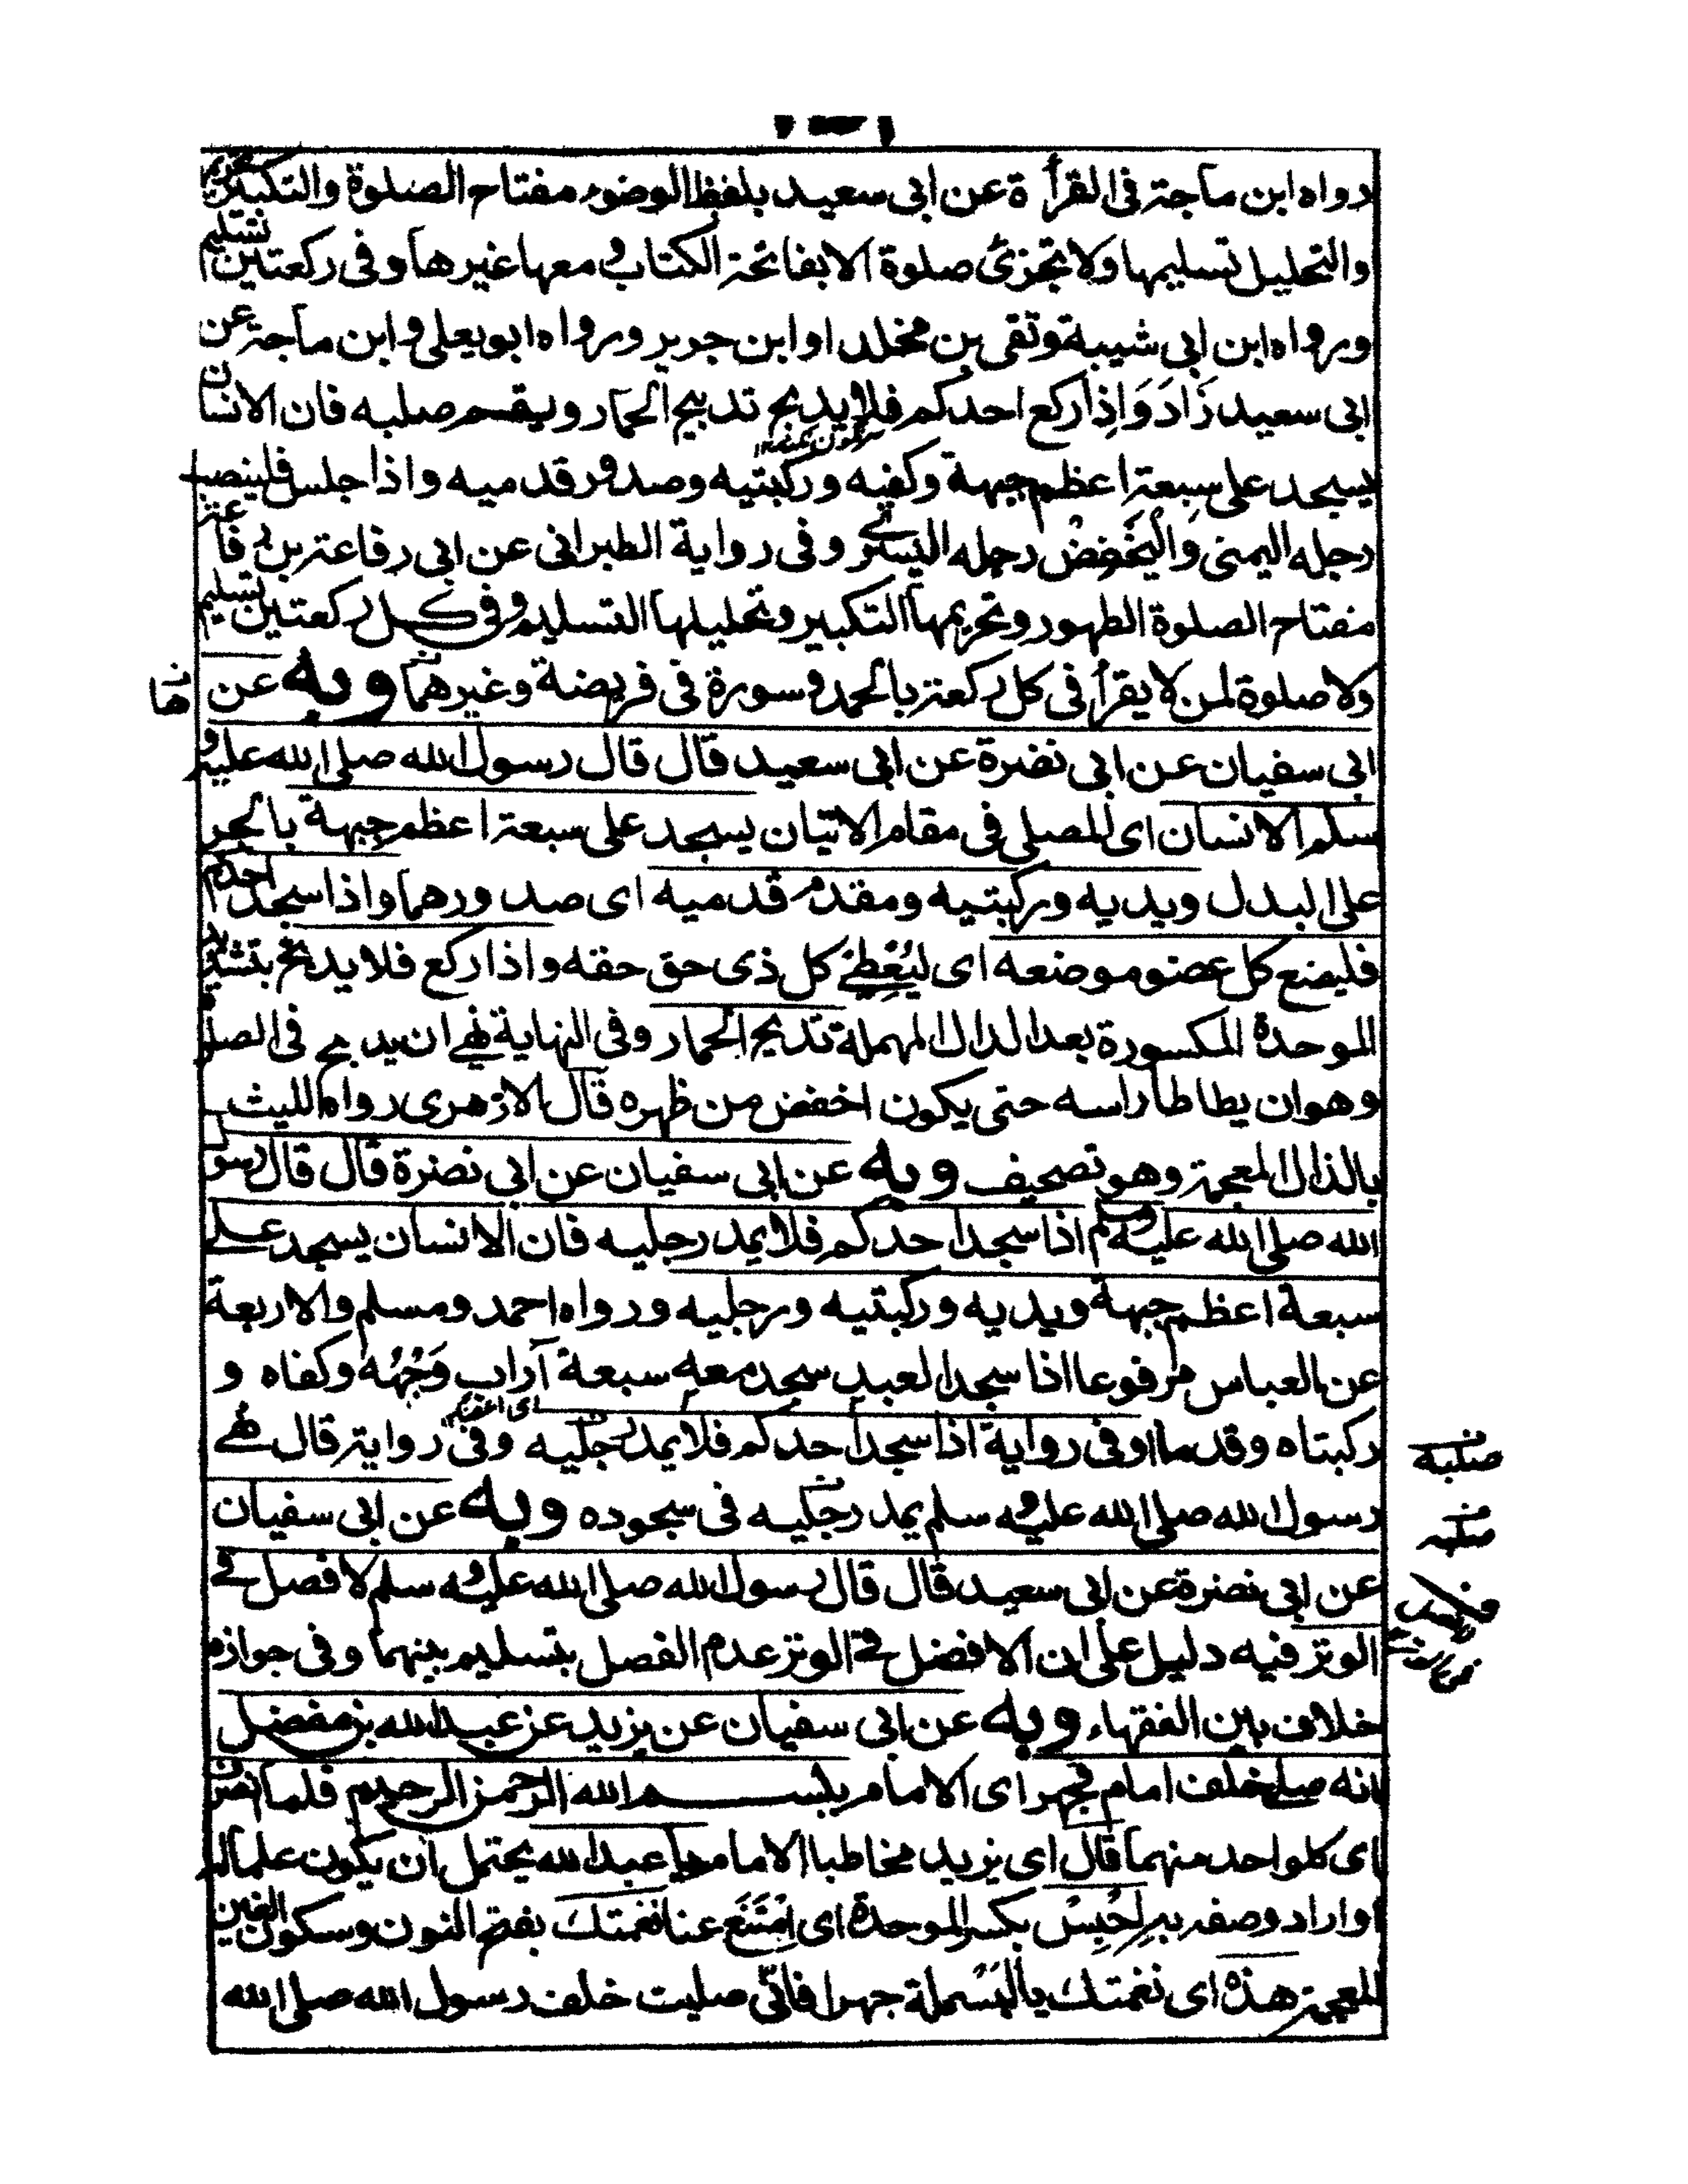 رواه ابن ماجة فى القرأة عن ابى سعيد بلفظ الوضوء مفتاح الصلوة والتكبير تحريمها
والتحليل تسليمها ولا تجزئ صلوة الا بفاتحة الكتاب و معها غيرها وفى ركعتين تسليم
ورواه ابن ابى شيبة وتقى بن مخلد او ابن جرير ورواه ابو يعلى و ابن ماجة عن
ابى سعيد زَادَ وَاِذا ركع احدكم فلا يدبح تدبيح الحمار وليقم صلبه فان الانسان
يسجد على سبعة اعظم جبهة وكفيه وركبتيه وصدور قدميه واذا جلس فلينصب
رجله اليمنى وَالْيَخْفِضْ رجله اليسرى وفى رواية الطبرانى عن ابى رفاعة بن رفاعة
مفتاح الصلوة الطهور وتحريمها التكبير وتحليلها التسليم و فى كل ركعتين تسليم
ولا صلوة لمن لا يقرأ فى كل ركعة بالحمد و سورة فى فريضة وغيرهما وبه عن
ها
ابى سفيان عن ابى نضرة عن ابى سعيد قال قال رسول الله صلى الله عليه و
سلم الانسان اى المصلى فى مقام الاتيان يسجد على سبعة اعظم جبهة بالجر
على البدل ويديه وركبتيه ومقدم قدميه اى صدورهما واذا سجد احدكم
فليضع كل عضو موضعه اى ليُعْطِىْ كل ذى حق حقه واذا ركع فلا يدبح بتشديد
الموحدة المكسورة بعد الدال المهملة تدبيح الحمار وفى النهاية نهى ان يدبح فى الصلوة
وهو ان يطاطأ راسه حتى يكون اخفض من ظهره قال الازهرى رواه الليث
بالذال المعجمة وهو تصحيف وبه عن ابى سفيان عن ابى نضرة قال قال رسول
الله صلى الله عليه وسلم اذا سجد احدكم فلا يمد رجليه فان الانسان يسجد على
سبعة اعظم جبهة ويديه وركبتيه ورجليه ورواه احمد ومسلم والاربعة
عن العباس مرفوعا اذا سجد العبد سجد معه سبعة آراب وَجْهُهُ وكفاه و
ركبتاه وقدماه وفى رواية اذا سجد احدكم فلا يمد رجليه وفى رواية قال نهى
صلبه
رسول الله صلى الله عليه و سلم يمد رجليه فى سجوده وبه عن ابى سفيان
صلبه
عن ابى نضرة عن ابى سعيد قال قال رسول الله صلى الله عليه و سلم لا فصل فى
الوتر فيه دليل على ان الافضل فى الوتر عدم الفصل بتسليم بينهما وفى جوازه
خلاف بين الفقهاء وبه عن ابى سفيان عن يزيد عن عبد الله بن مفضل
انه صلى خلف امام فجهر اى الامام ببسم الله الرحمن الرحيم فلما انصرف
اى كلواحد منهما قال اى يزيد مخاطبا الامام يا عبد الله يحتمل ان يكون علما له
او اراد وصفه به اِحْبِسْ بكسر الموحدة اى اِمْتَنَعَ عنا نغمتك بفتح النون وسكون الغين
المعجمة هذه اى نغمتك بالْبَسْمَلة جهرا فانّى صليت خلف رسول الله صلى الله